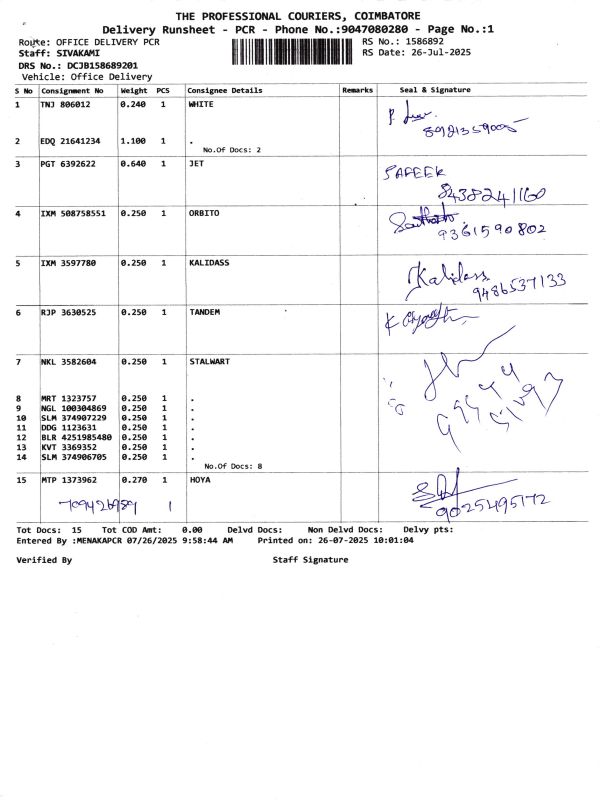 THE PROFESSIONAL COURIERS, COIMBATORE
Delivery Runsheet - PCR - Phone No.:9047080280 - Page No.:1
Route: OFFICE DELIVERY PCR RS No.: 1586892
Staff: SIVAKAMI RS Date: 26-Jul-2025
DRS No.: DCJB158689201
Vehicle: Office Delivery
S No Consignment No Weight PCS Consignee Details Remarks Seal & Signature
1 TNJ 806012 0.240 1 WHITE
2 EDQ 21641234 1.100 1 .
No.Of Docs: 2
3 PGT 6392622 0.640 1 JET SAFEEK
8438241160
4 IXM 508758551 0.250 1 ORBITO
9361590802
5 IXM 3597780 0.250 1 KALIDASS Kalidass
9486537133
6 RJP 3630525 0.250 1 TANDEM
7 NKL 3582604 0.250 1 STALWART
8 MRT 1323757 0.250 1 .
9 NGL 100304869 0.250 1 .
10 SLM 374907229 0.250 1 .
11 DDG 1123631 0.250 1 .
12 BLR 4251985480 0.250 1 .
13 KVT 3369352 0.250 1 .
14 SLM 374906705 0.250 1 .
No.Of Docs: 8
15 MTP 1373962 0.270 1 HOYA
9025495172
Tot Docs: 15 Tot COD Amt: 0.00 Delvd Docs: Non Delvd Docs: Delvy pts:
Entered By :MENAKAPCR 07/26/2025 9:58:44 AM Printed on: 26-07-2025 10:01:04
Verified By Staff Signature